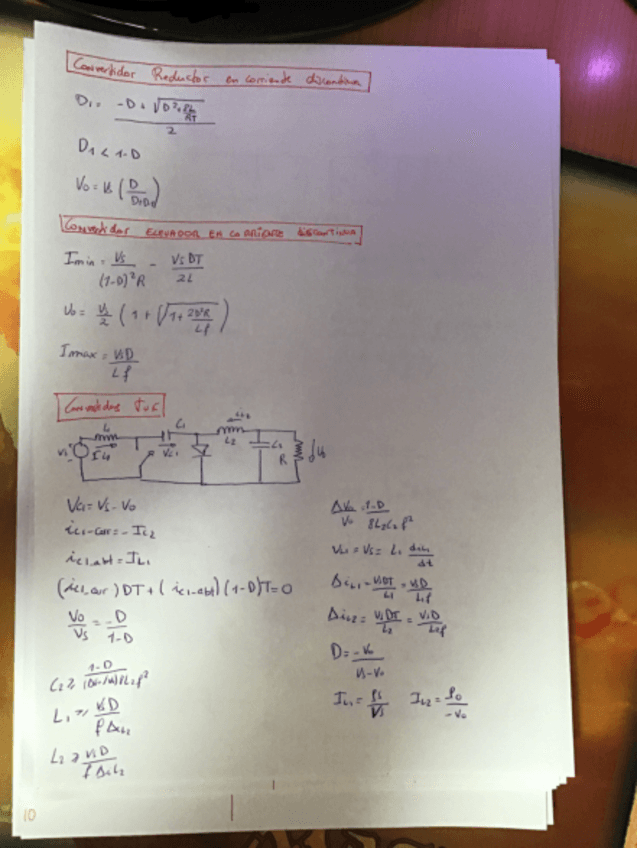 Convertidor Reductor en corriente discontinua
D1 = -D + √(D²+8L/RT) / 2
D1 < 1-D
Vo = Vs (D / D+D1)
Convertidor ELEVADOR EN CORRIENTE DISCONTINUA
Imin = Vs / (1-D)²R - VsDT / 2L
Vo = Vs/2 (1 + √(1 + 2D²R / Lf))
Imax = VsD / Lf
L1 C1 L2
Vs IL1 VC1 C2 R Vo
VC1 = Vs - Vo
iC1-cerr = -IL2
iC1-abt = IL1
(iC1-cerr)DT + (iC1-abt)(1-D)T = 0
Vo/Vs = -D / 1-D
C2 ≥ 1-D / (ΔVo/Vo)8L2f²
L1 ≥ VsD / fΔiL1
L2 ≥ VsD / fΔiL2
ΔVo/Vo = 1-D / 8L2C2f²
VL1 = Vs = L1 diL1/dt
ΔiL1 = VsDT/L1 = VsD/L1f
ΔiL2 = VsDT/L2 = VsD/L2f
D = -Vo / Vs-Vo
IL1 = Ps/Vs IL2 = Po/-Vo
10